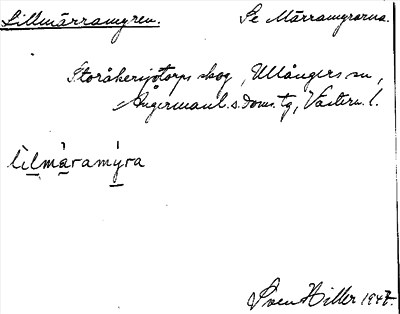 Lillmärramyren. Se Märramyrarna.
Storåkerstorps skog, Ullångers sn,
Ångermanl. s. doms. tg, Västern. l.
lìlmàramýra
Sven Hiller 1947.